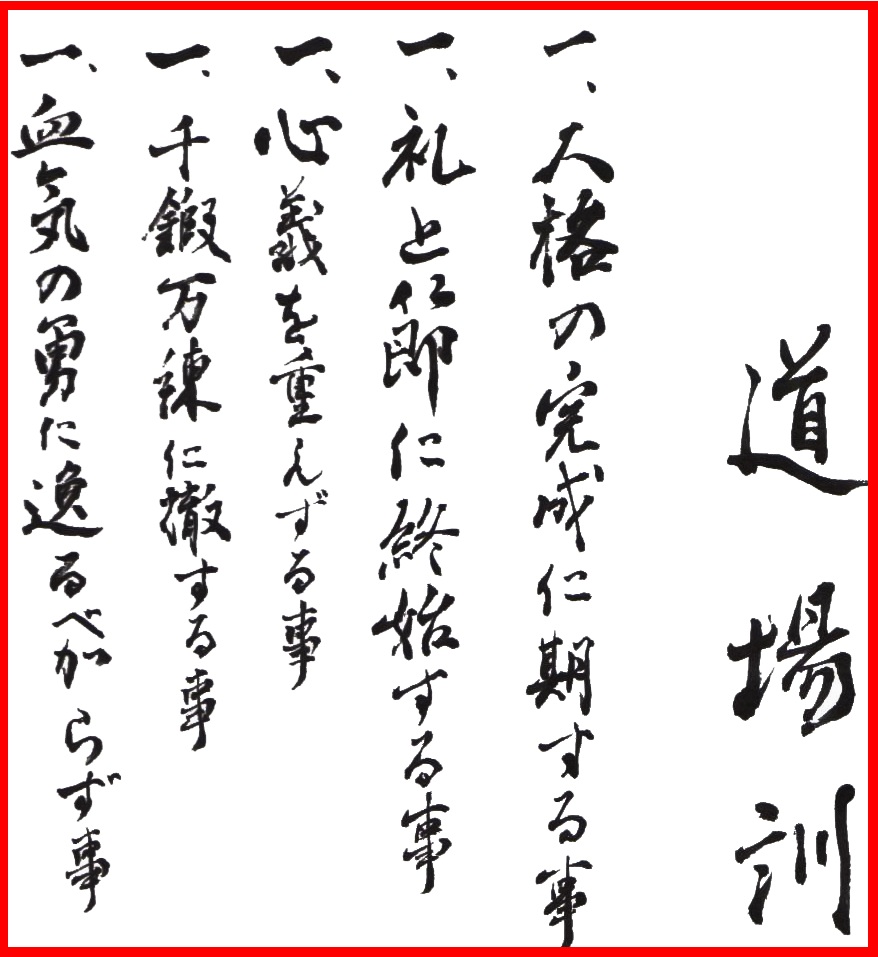 道場訓
一、人格の完成仁期する事
一、礼と仁節仁終始する事
一、心義を重んずる事
一、千鍛万錬仁徹する事
一、血気の勇に逸るべからず事